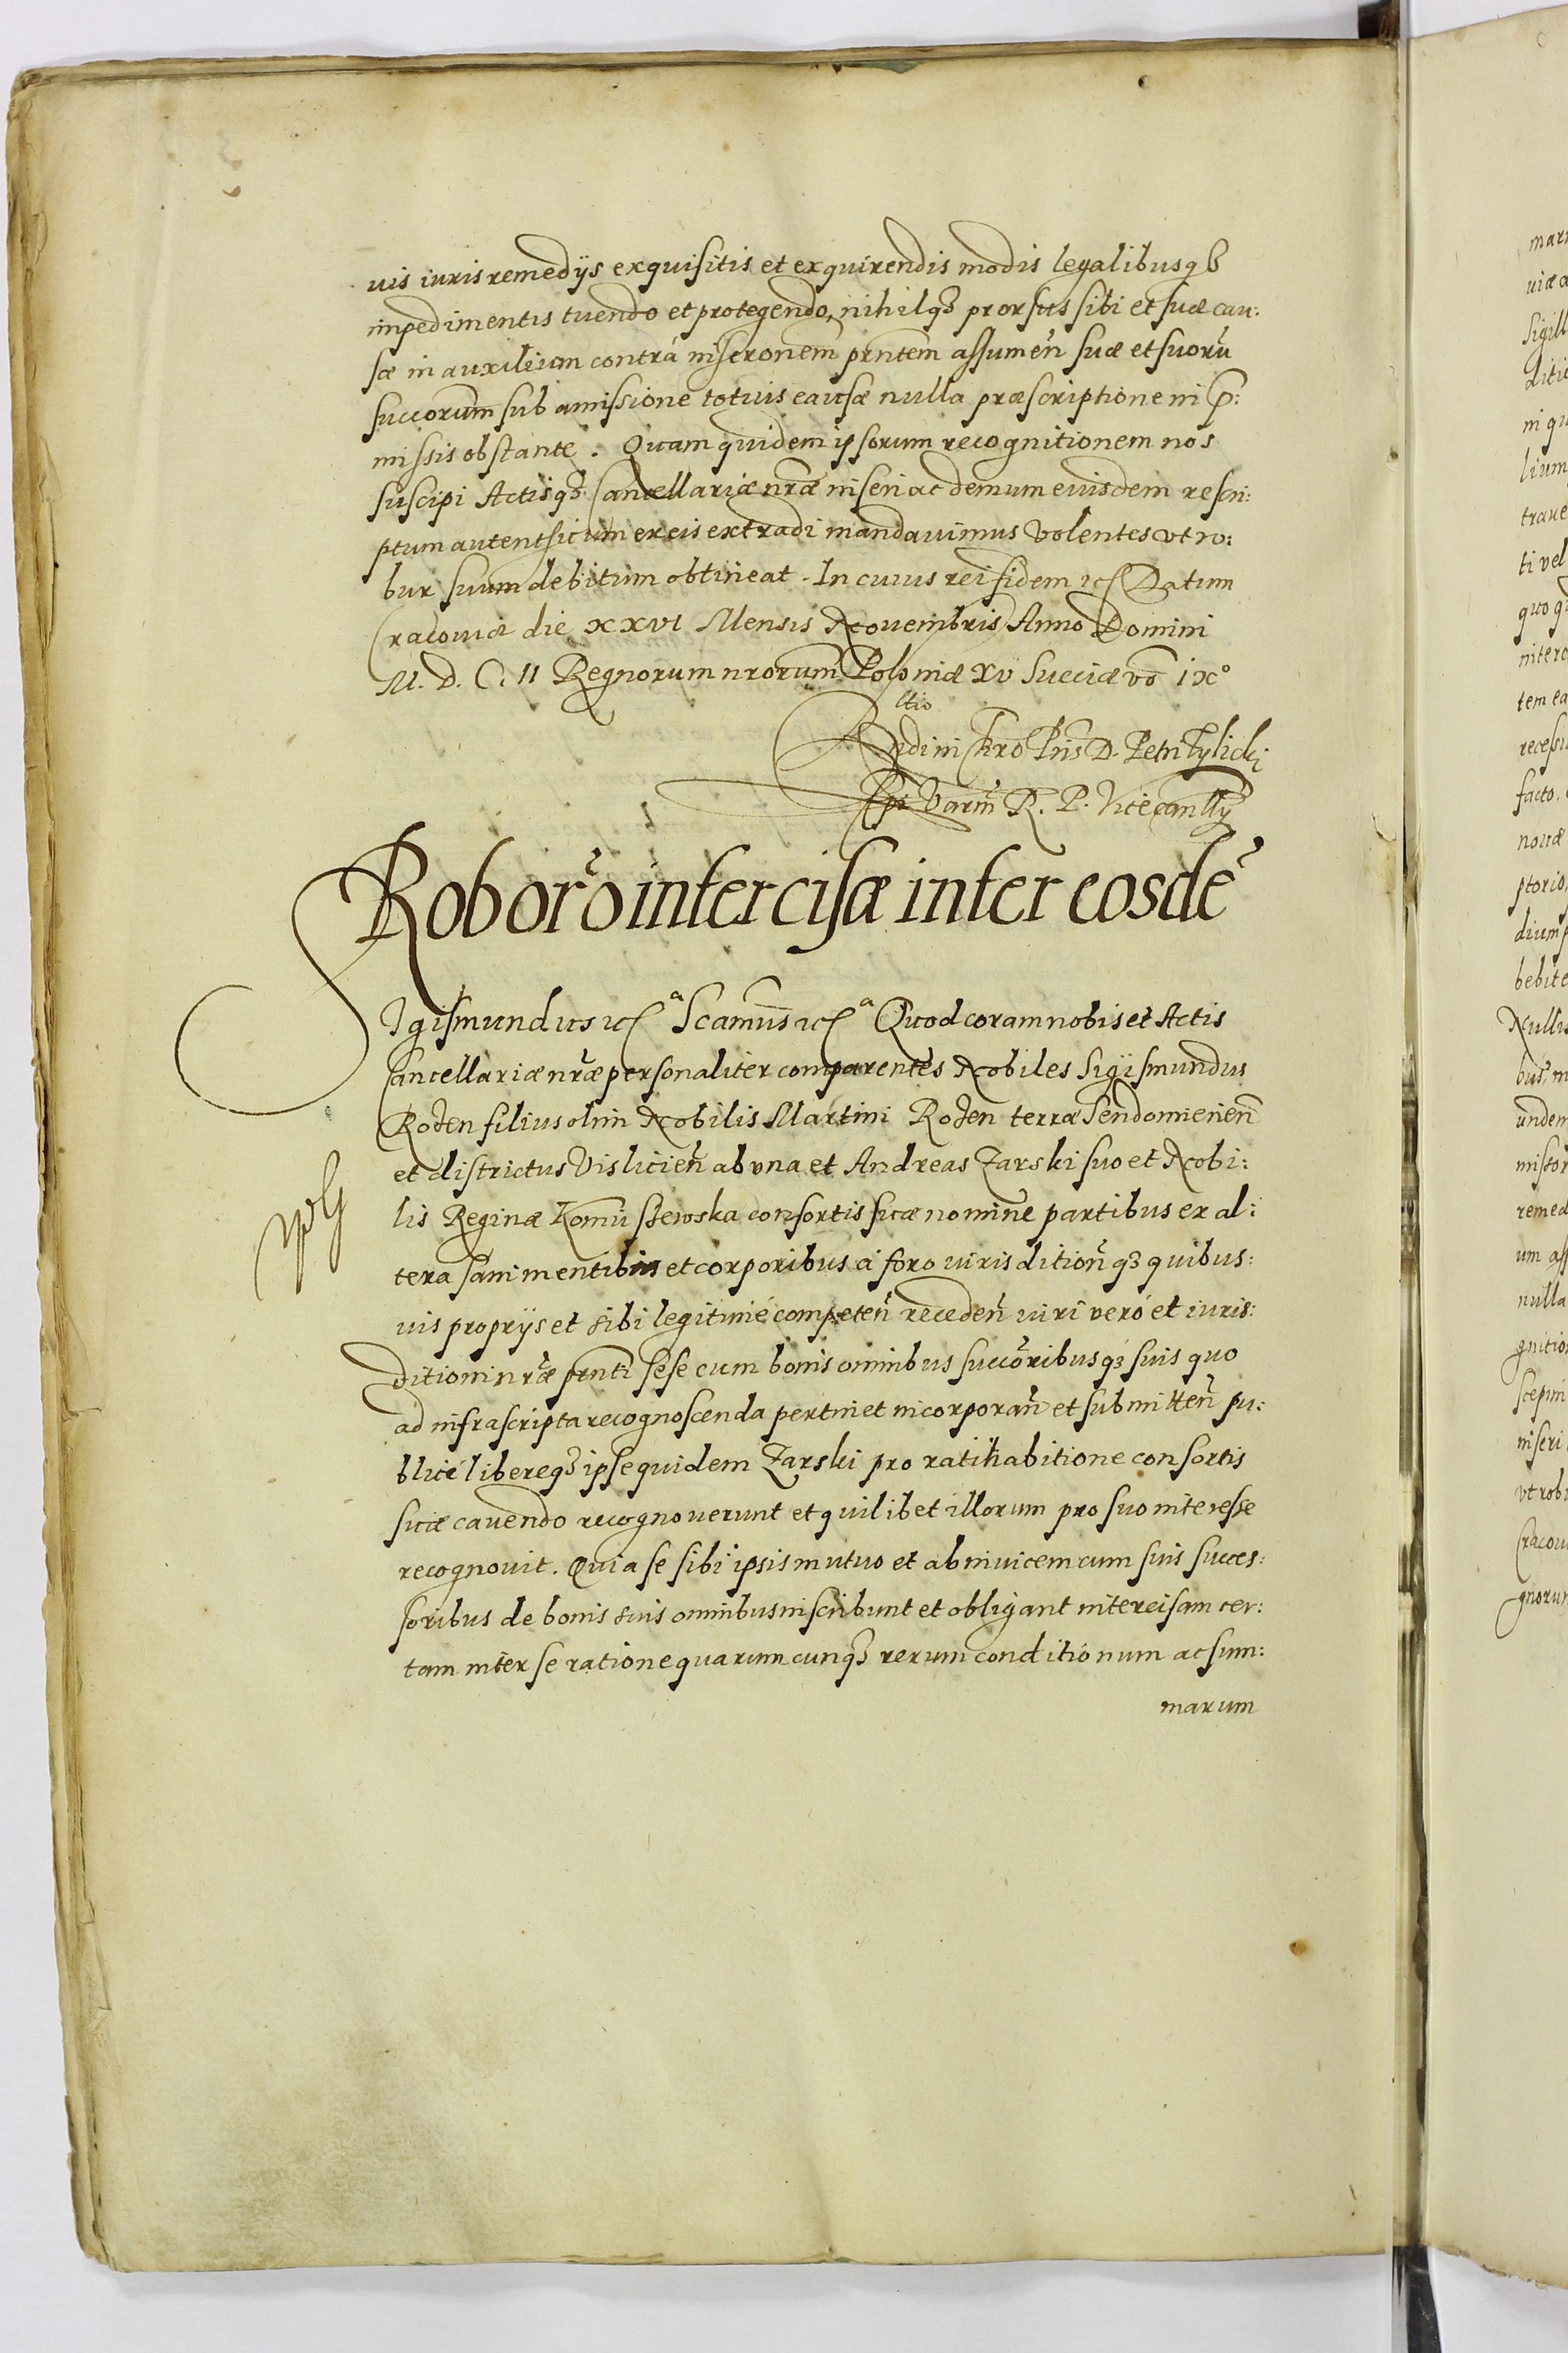 uis iuris remedÿs exquisitis et exquirendis modis legalibusqȝ
impedimentis tuendo et protegendo, nihilqȝ prorsus sibi et suæ cau:
sæ in auxilium contrà inscronem prntem assumen̄ suæ et suorū
succorum sub amissione totius causæ nulla præscriptione in p̄:
missis obstante. Quam quidem ipsorum recognitionem nos
suscipi Actisqȝ Cancellariæ nr̄æ inseri ac demum eiusdem rescri:
ptum autenthicum ex eis extradi mandauimus volentes vt ro:
bur suum debitum obtineat. In cuius rei fidem etc Datum
Cracouiæ die XXVI Mensis Nouembris Anno Domini
M. D. C. II Regnorum nrorum Poloniæ XV Sueciæ vō IX°
ltio
Rndi in Chrō Pris D. Petri Tÿlicki
Epi Varm̄ R. P. Vicecancllÿ
Roborō intercisæ inter eosdē
Sigismundus etc ª Scamus etc ª Quod coram nobis et Actis
Cancellariæ nr̄æ personaliter comparentes Nobiles Sigismundus
Roden filius olim Nobilis Martini Roden terræ Sendomirien̄
et districtus Vislicien̄ ab vna et Andreas Zarski suo et Nobi:
lis Reginæ Komisszewska consortis suæ nomine partibus ex al:
tera sani mentibus et corporibus à foro iurisdition̄qȝ quibus:
uis proprÿs et sibi legitimè competen̄ receden̄ iuri verò et iuris:
ditioni nr̄æ prnti sese cum bonis omnibus succōribusqȝ suis quo
ad infrascripta recognoscenda pertinet incorporan̄ et submitten̄ pu:
blicè libereqȝ ipse quidem Zarski pro ratihabitione consortis
suæ cauendo recognouerunt et quilibet illorum pro suo interesse
recognouit. Quia se sibi ipsis mutuo et ab inuicem cum suis succes:
soribus de bonis suis omnibus inscribunt et obligant intercisam cer:
tam inter se ratione quarumcunqȝ rerum conditionum ac sum:
marum